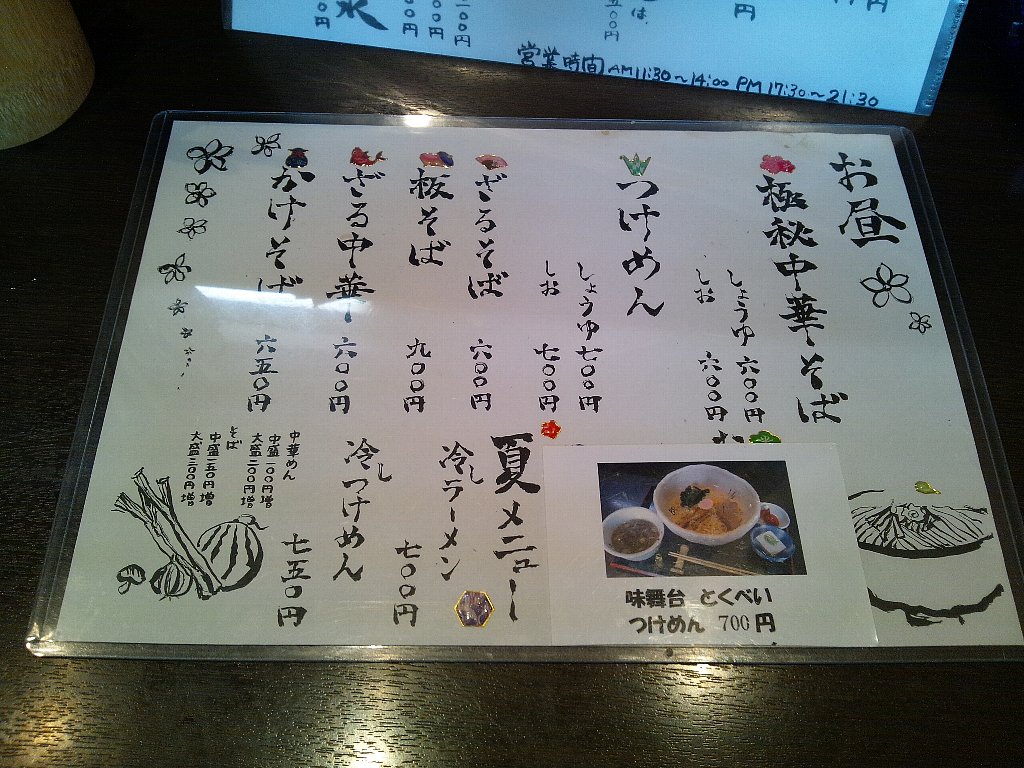 営業時間 AM11:30〜14:00 PM17:30〜21:30
お昼
極秘中華そば
しょうゆ 六〇〇円
しお 六〇〇円
つけめん
しょうゆ 七〇〇円
しお 七〇〇円
ざるそば 六〇〇円
板そば 九〇〇円
ざる中華 六〇〇円
かけそば 六五〇円
夏メニュー
冷しラーメン 七〇〇円
冷しつけめん 七五〇円
中華めん
中盛一〇〇円増
大盛二〇〇円増
そば
中盛一五〇円増
大盛三〇〇円増
味舞台 とくべい
つけめん 700円